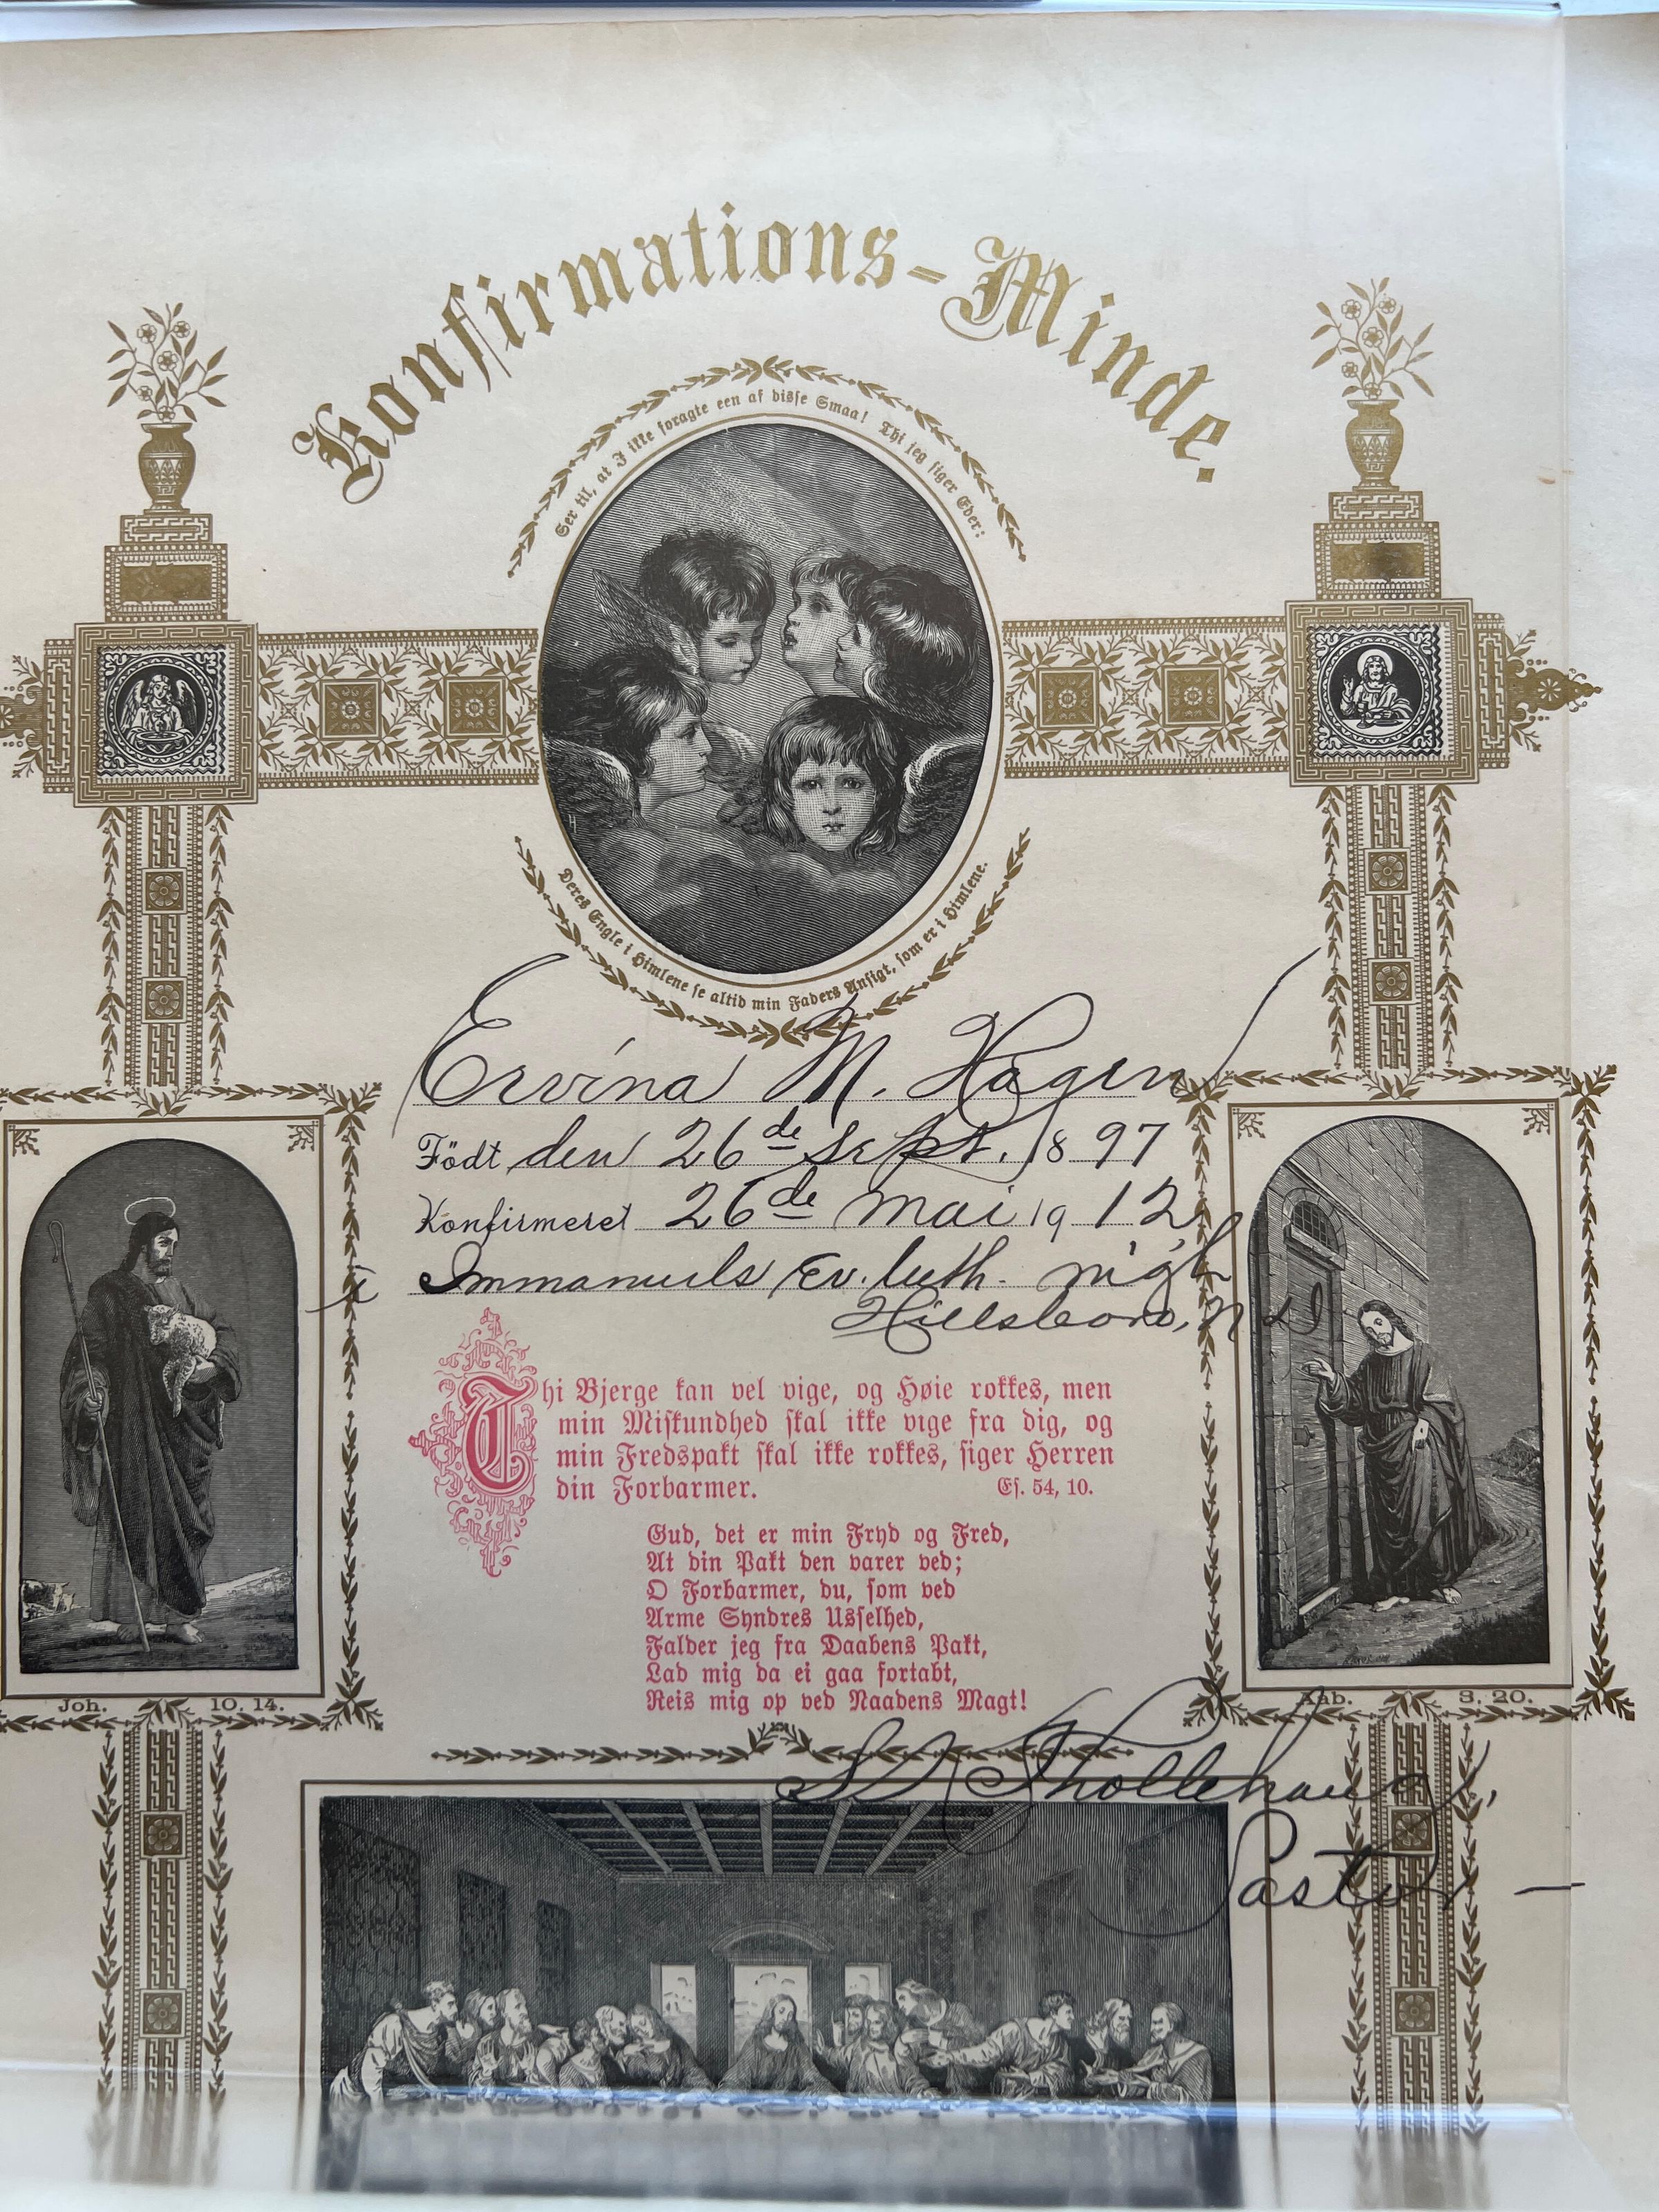 Konfirmations-Minde.
Ser til, at I ikke foragte een af disse Smaa! Thi jeg siger Eder:
Deres Engle i Himlene se altid min Faders Ansigt, som er i Himlene.
Ervina M. Hagen
Födt den 26de Sept. 1897
Konfirmeret 26de Mai 1912
i Immanuels Ev. luth. mgh
Hillsboro, N D
Thi Bjerge kan vel vige, og Høie rokkes, men
min Miskundhed skal ikke vige fra dig, og
min Fredspakt skal ikke rokkes, siger Herren
din Forbarmer. Es. 54, 10.
Gud, det er min Fryd og Fred,
At din Pakt den varer ved;
O Forbarmer, du, som ved
Arme Syndres Usselhed,
Falder jeg fra Daabens Pakt,
Lad mig da ei gaa fortabt,
Reis mig op ved Naadens Magt!
Joh. 10. 14.
Aab. 3. 20.
Pastor